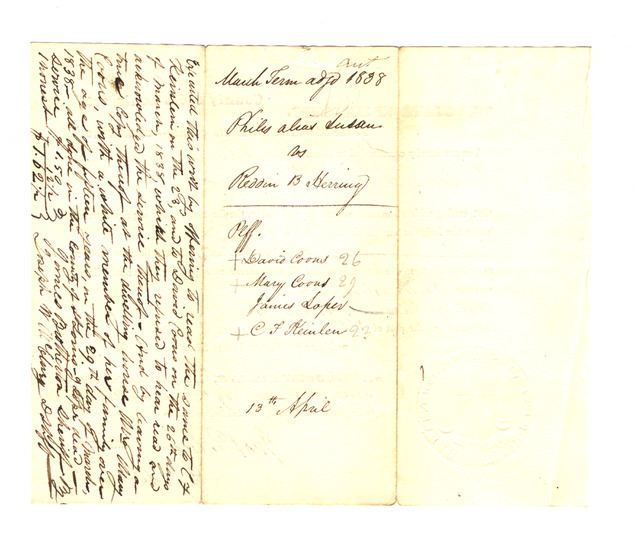 Executed this writ by offering to read the same to C F
Keinlen on the 23, and to David Coons on the 26th days
of March, 1838 which they refused to hear read and
acknowledged the service thereof - And by leaving a
true Copy thereof at the dwelling house Mrs Mary
Coons with a white member of her family over
the age of fifteen years on the 29th day of March,
1838 - all done in the County of St Louis - J Loper dead -
Service $1.50
James Brotherton Sheriff By
12½
$1.62½
Joseph W. McClurg Deputy
March Term adjd 1838
Philis alias
vs
Reddin B Herring
Peff.
+ David Coons 26
+ Mary Coons 29
James Loper
+ C F Keinlen 23
13th April